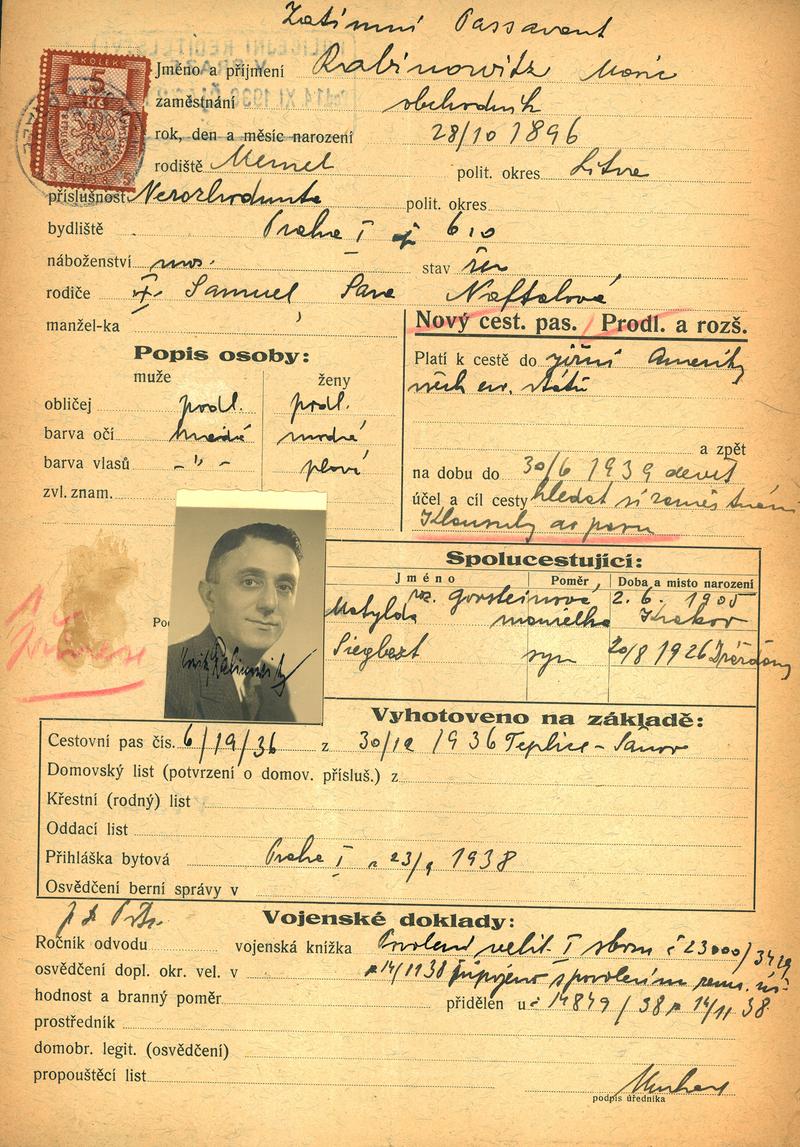 Zatímní Passavant
KOLEK
5
Kč
Jméno a příjmení Rabinowitz Moric
zaměstnání obchodník
rok, den a měsíc narození 28/10 1896
rodiště Memel polit. okres Litva
příslušnost Nerozhodnuta polit. okres
bydliště Praha I 610
náboženství mos. stav žen
rodiče Samuel Sara Naftalová
manžel-ka
Nový cest. pas. / Prodl. a rozš.
Popis osoby:
muže ženy
obličej podl. podl.
barva očí hnědé modré
barva vlasů -"- plavé
zvl. znam.
Platí k cestě do jižní Ameriky
všech ev. států
a zpět
na dobu do 30/6 1939 devět
účel a cíl cesty hledat si zaměstnání
Klausuly do pasu
Spolucestující:
Jméno Poměr Doba a místo narození
Matylda roz. Gorsteinová manželka 2. 6. 1905 Krakov
Siegbert syn 20/8 1926 Drážďany
Vyhotoveno na základě:
Cestovní pas čís. 6/19/36 z 30/12 1936 Teplice-Šanov
Domovský list (potvrzení o domov. přísluš.) z
Křestní (rodný) list
Oddací list
Přihláška bytová Praha I 23/9 1938
Osvědčení berní správy v
Vojenské doklady:
Ročník odvodu vojenská knížka Povolení velit. I sboru č 23000/
osvědčení dopl. okr. vel. v 14/11 38 připojeno s povolením zem.
hodnost a branný poměr přidělen u č 14849/38 14/11 38
prostředník
domobr. legit. (osvědčení)
propouštěcí list
podpis úředníka